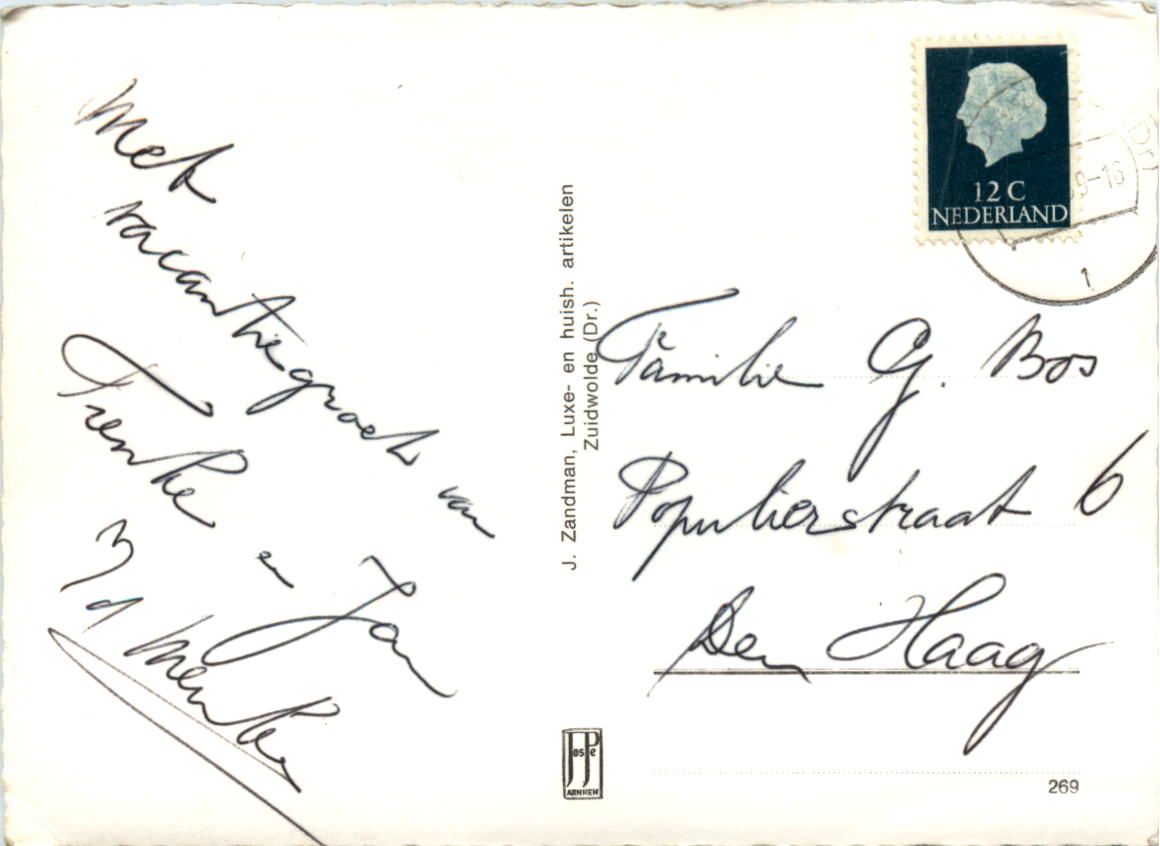 Met
vacantiegroet van
Tienke
en Jan
J. Zandman, Luxe- en huish. artikelen
Zuidwolde (Dr.)
12 C
NEDERLAND
9-16
1
Familie G. Bos
Populierstraat 6
Den Haag
JosPe
ARNHEM
269